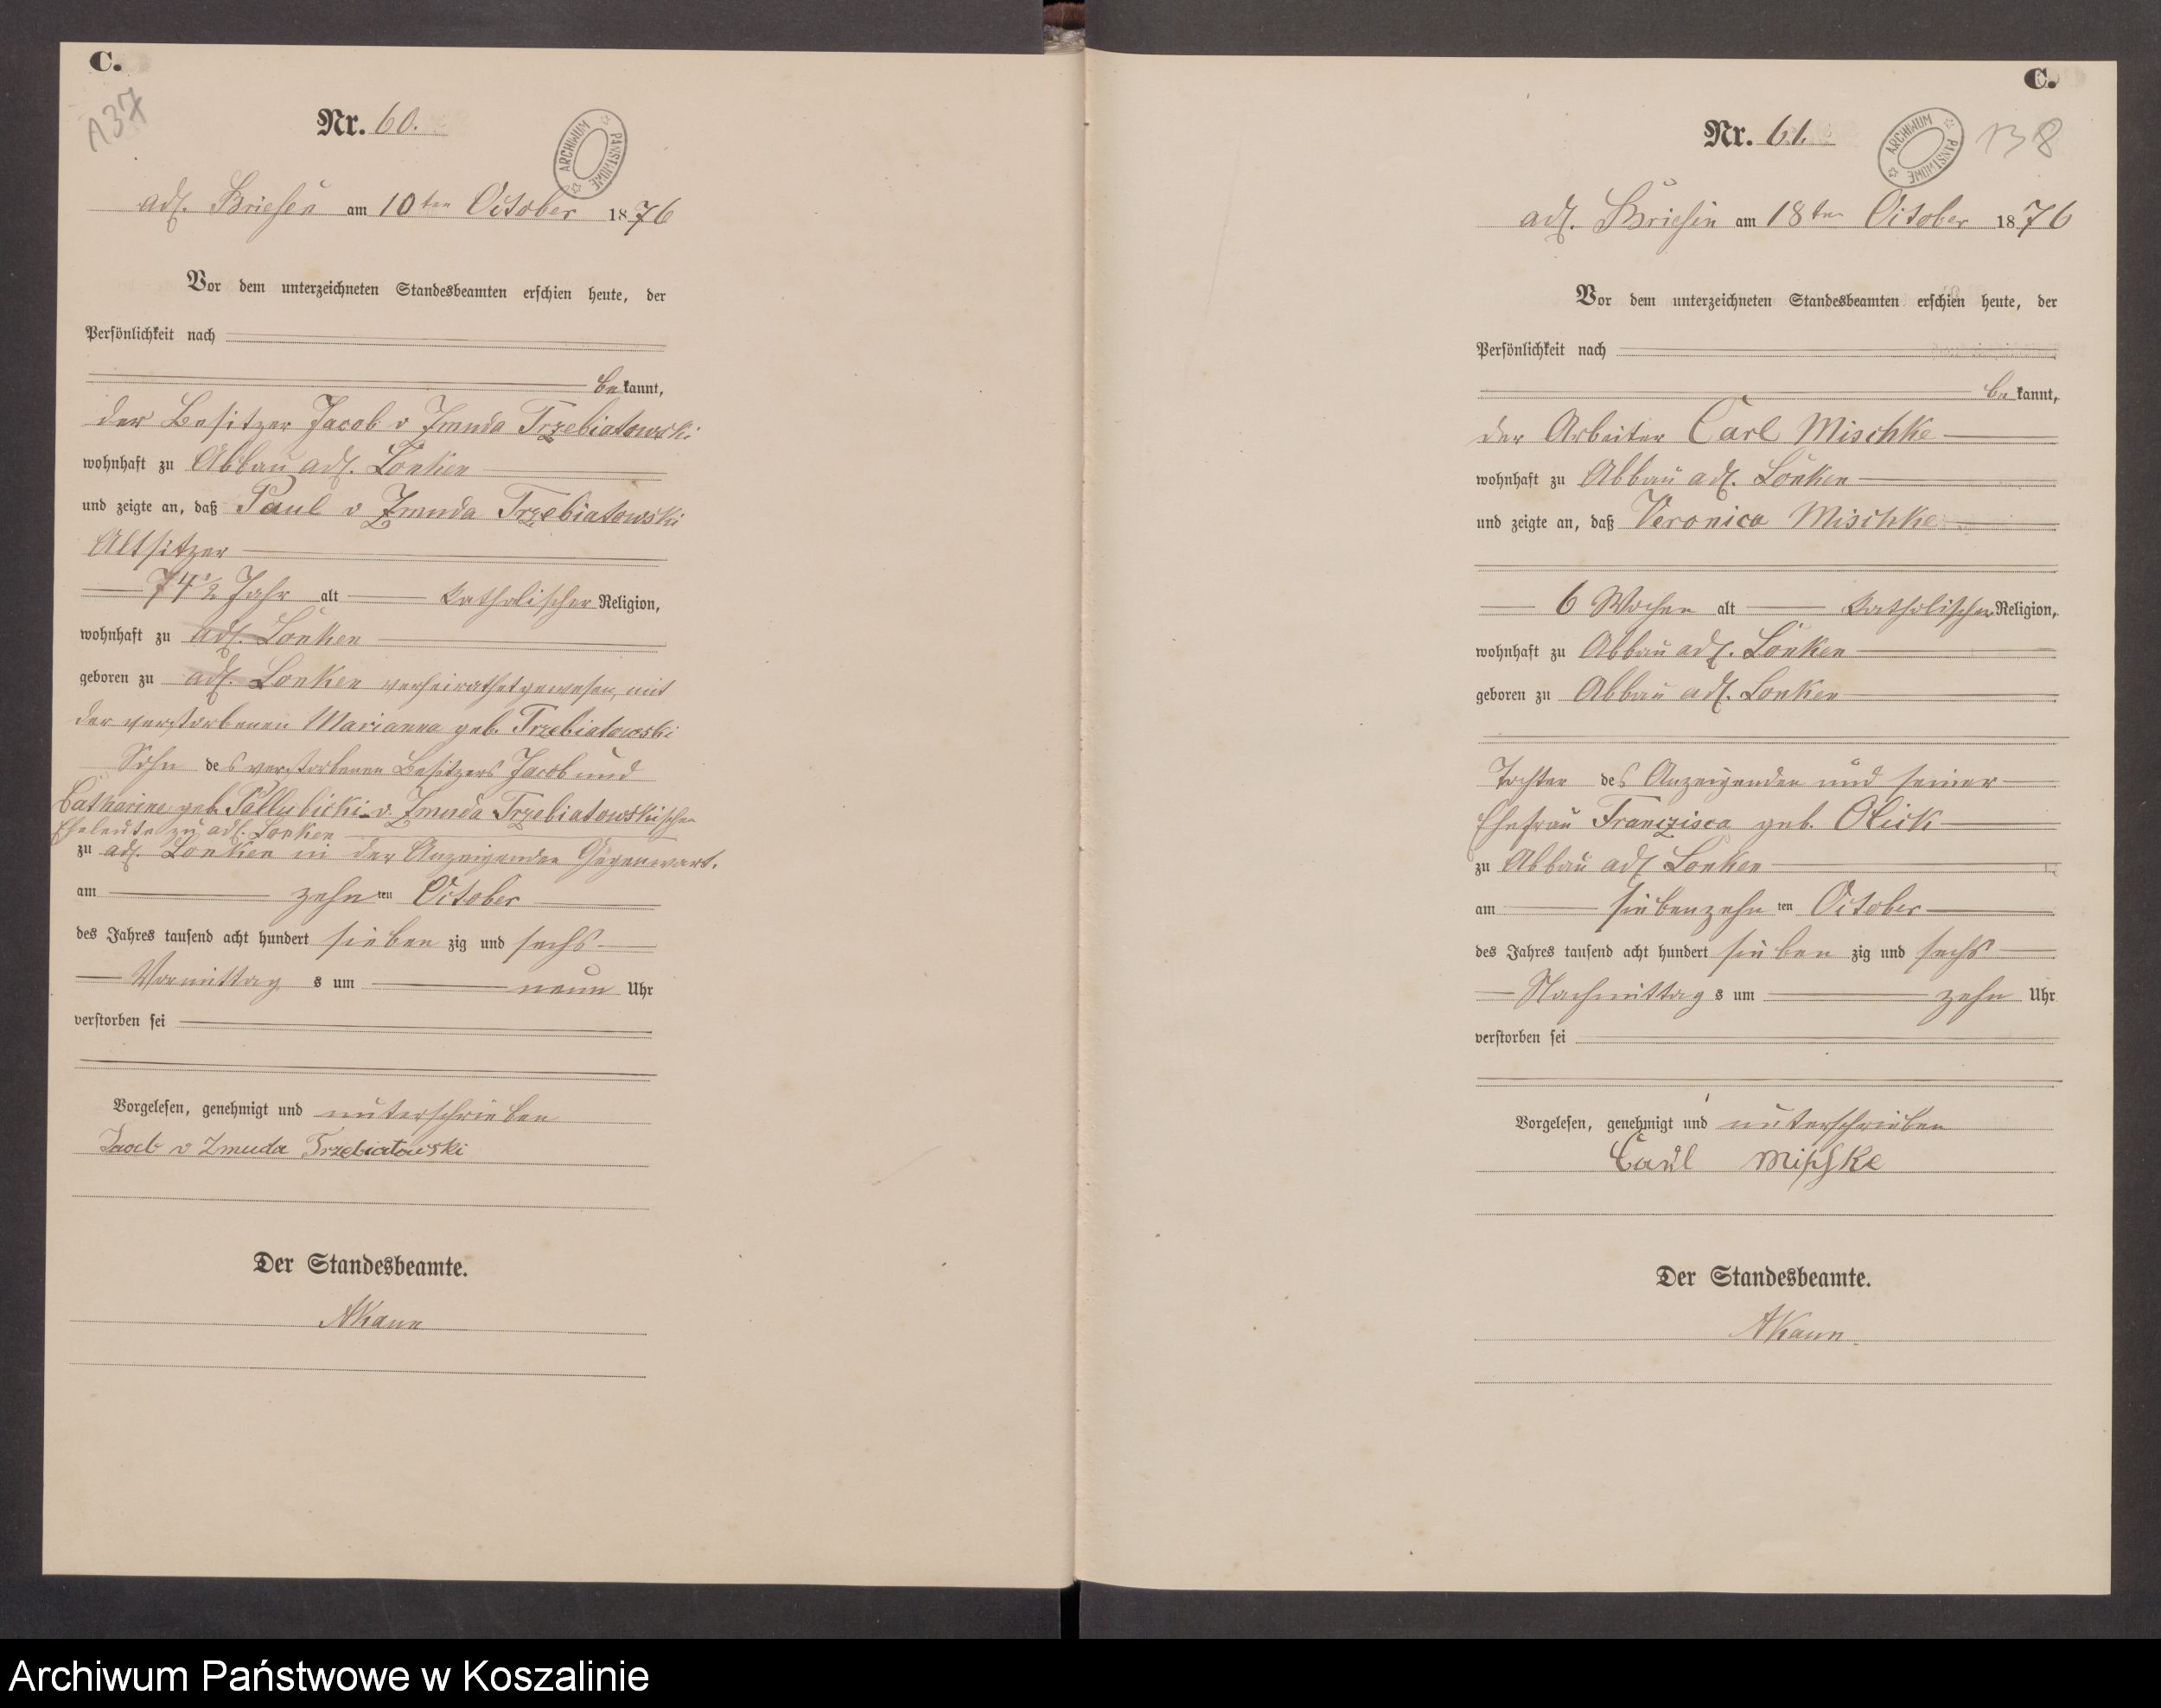 C.
137
Nr. 60.
ARCHIWUM PAŃSTWOWE
adl. Briesen am 10ten October 1876
Vor dem unterzeichneten Standesbeamten erschien heute, der
Persönlichkeit nach
bekannt,
der Besitzer Jacob v Zmuda Trzebiatowski
wohnhaft zu Abbau adl. Lonken
und zeigte an, daß Paul v Zmuda Trzebiatowski
Altsitzer
74 1/2 Jahr alt katholischer Religion,
wohnhaft zu adl. Lonken
geboren zu adl. Lonken verheirathet gewesen, mit
der verstorbenen Marianna geb. Trzebiatowski
Sohn des verstorbenen Besitzers Jacob und
Catharine geb. Pallubicki v. Zmuda Trzebiatowskischen
Eheleute zu adl. Lonken
zu adl. Lonken in der Anzeigenden Gegenwart.
am zehnten October
des Jahres tausend acht hundert siebenzig und sechs
Vormittags um neun Uhr
verstorben sei
Vorgelesen, genehmigt und unterschrieben
Jacob v Zmuda Trzebiatowski
Der Standesbeamte.
AKann
C.
138
Nr. 61.
ARCHIWUM PAŃSTWOWE
adl. Briesen am 18ten October 1876
Vor dem unterzeichneten Standesbeamten erschien heute, der
Persönlichkeit nach
bekannt,
der Arbeiter Carl Mischke
wohnhaft zu Abbau adl. Lonken
und zeigte an, daß Veronica Mischke
6 Wochen alt katholischer Religion,
wohnhaft zu Abbau adl. Lonken
geboren zu Abbau adl. Lonken
Tochter des Anzeigenden und seiner
Ehefrau Franzisca geb. Olick
zu Abbau adl Lonken
am siebenzehnten October
des Jahres tausend acht hundert siebenzig und sechs
Nachmittags um zehn Uhr
verstorben sei
Vorgelesen, genehmigt und unterschrieben
Carl Mischke
Der Standesbeamte.
AKann
Archiwum Państwowe w Koszalinie